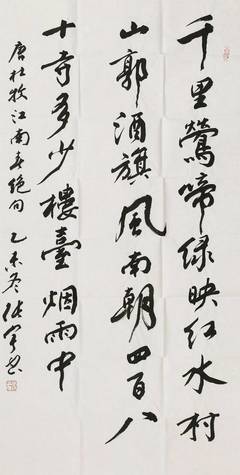 千里鶯啼绿映红水村
山郭酒旗風南朝四百八
十寺多少樓臺烟雨中
唐杜牧江南春绝句 乙未冬